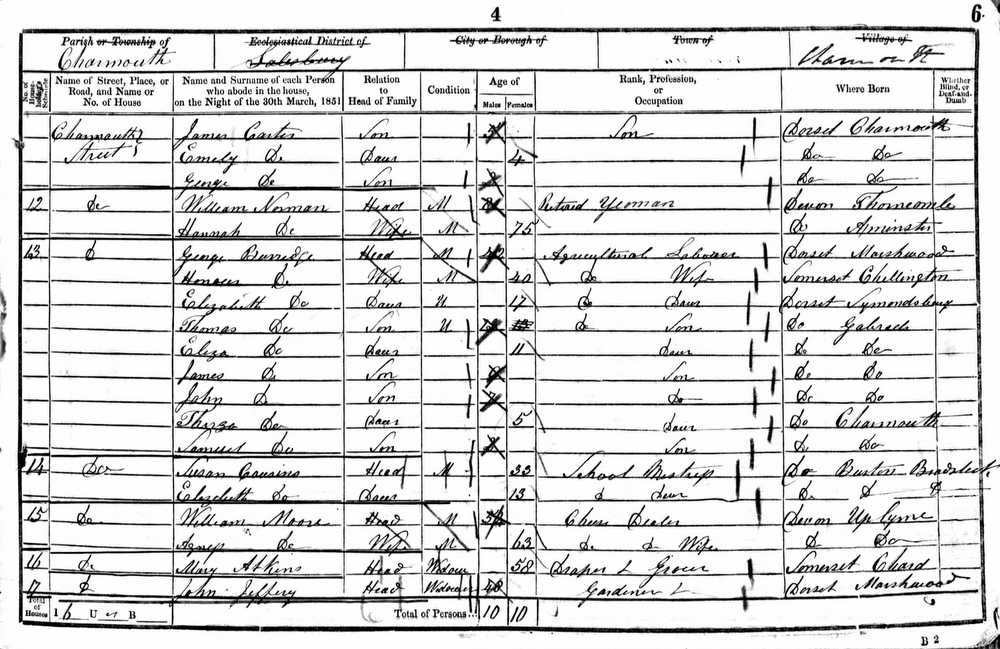 4
6
Parish or Township of Ecclesiastical District of City or Borough of Town of Village of
Charmouth Charmouth
No. of Householder's Schedule Name of Street, Place, or Road, and Name or No. of House Name and Surname of each Person who abode in the house, on the Night of the 30th March, 1851 Relation to Head of Family Condition Age of Males Females Rank, Profession, or Occupation Where Born Whether Blind, or Deaf-and-Dumb
Charmouth James Carter Son Son Dorset Charmouth
Street Emily Do Daur 4 Do Do
George Do Son Do Do
12 Do William Norman Head M Yeoman Devon Thorncombe
Hannah Do Wife M 75 Do Aminster
13 D George Burridge Head M 42 Agricultural Labourer Dorset Marshwood
Honour Do Wife M 40 Do Wife Somerset Chellington
Elizabeth Do Daur U 17 Do Daur Dorset Symondsbury
Thomas Do Son U Do Son Do
Eliza Do Daur 11 Daur Do Do
James Do Son 9 Son Do Do
John D Son 7 Do Do Do
Thirza Do Daur 5 Daur Do Charmouth
Samuel Do Son Son Do Do
14 Do Susan Cousins Head M 33 School Mistress Do Burton Bradstock
Elizabeth Do Daur 13 D Daur Do D D
15 Do William Moore Head M Dealer Devon Up Lyme
Agness Do Wife M 63 Do D Wife D Do
16 Do Mary Atkins Head Widow 58 Draper & Grocer Somerset Chard
17 D John Jeffery Head Widower 48 Gardener L Dorset Marshwood
Total of Houses 16 U B Total of Persons 10 10
B 2